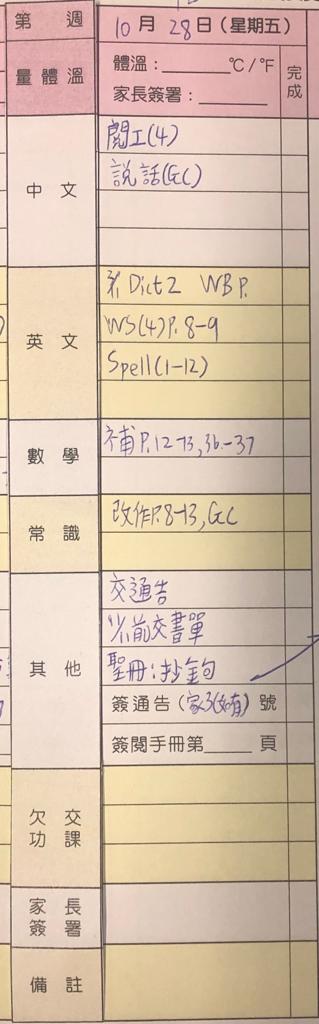 第 週
10月 28日(星期五)
量體溫
體溫:______°C/°F
家長簽署:______
完成
中文
閱工(4)
說話(GC)
英文
Dict 2 WB P.
WS(4)P.8-9
Spell(1-12)
數學
補P.12-13,36-37
常識
改作P.8-13,GC
其他
交通告
前交書單
聖冊:抄金句
簽通告(家3(如有)號
簽閱手冊第____頁
欠交功課
家長簽署
備註